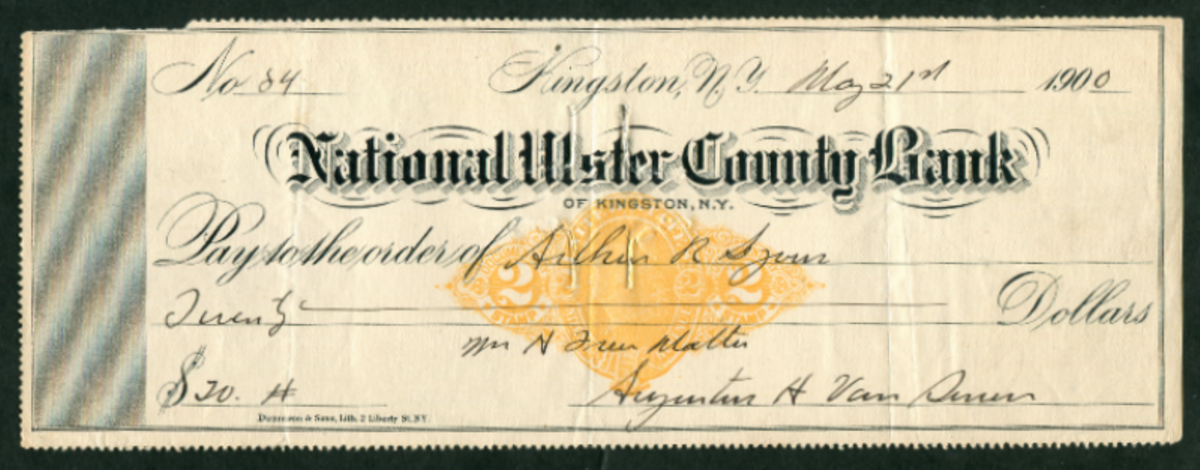 No 84 Kingston, N.Y. May 21st 1900
National Ulster County Bank
OF KINGSTON, N.Y.
Pay to the order of Arthur R
Twenty Dollars
2 2
STAMP STAMP
H
$20. Augustus H Van Buren
Lith. 2 Liberty St. N.Y.